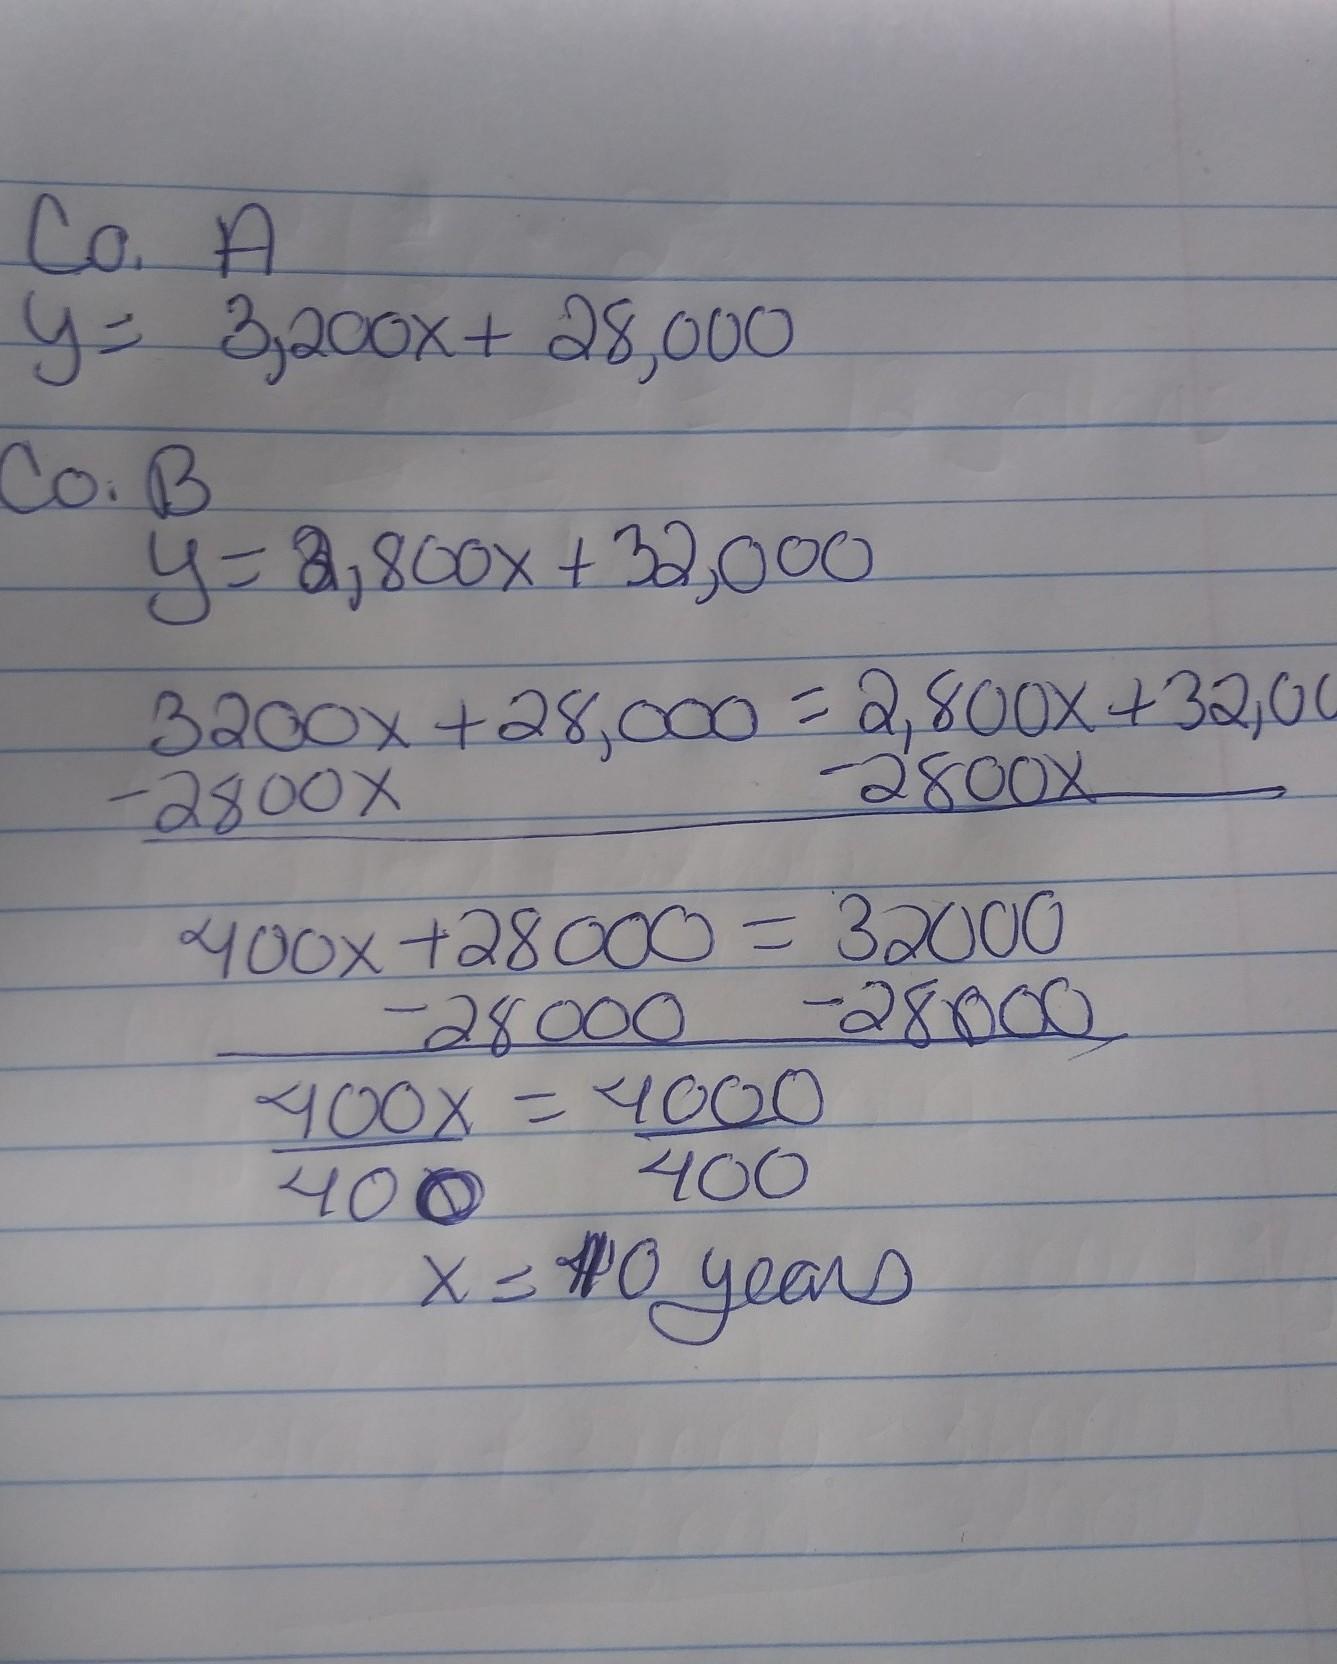 Co. A
y = 3,200x + 28,000
Co. B
y = 2,800x + 32,000
3200x + 28,000 = 2,800x + 32,00
-2800x -2800x
400x + 28000 = 32000
-28000 -28000
400x = 4000
400 400
x = 10 years